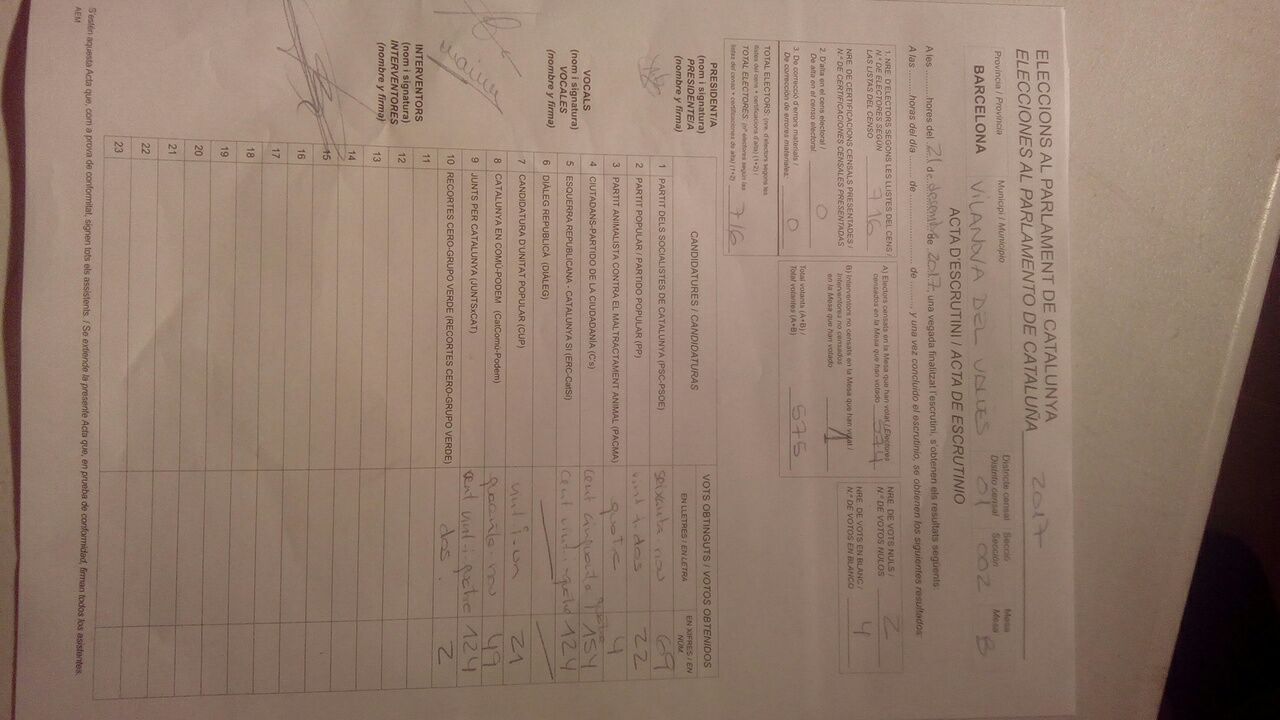 ELECCIONS AL PARLAMENT DE CATALUNYA
ELECCIONES AL PARLAMENTO DE CATALUÑA 2017
Província / Provincia Municipi / Municipio Districte censal Secció Mesa
Distrito censal Sección Mesa
BARCELONA VILANOVA DEL VALLÈS 01 002 B
ACTA D'ESCRUTINI / ACTA DE ESCRUTINIO
A les hores del 21 de desembre de 2017, una vegada finalitzat l'escrutini, s'obtenen els resultats següents:
A las horas del día de de y una vez concluido el escrutinio, se obtienen los siguientes resultados:
1. NRE. D'ELECTORS SEGONS LES LLISTES DEL CENS /
N.º DE ELECTORES SEGÚN
LAS LISTAS DEL CENSO 716
NRE. DE CERTIFICACIONS CENSALS PRESENTADES /
N.º DE CERTIFICACIONES CENSALES PRESENTADAS
2. D'alta en el cens electoral /
De alta en el censo electoral: 0
3. De correcció d'errors materials /
De corrección de errores materiales: 0
TOTAL ELECTORS: (nre. d'electors segons les
llistes del cens + certificacions d'alta) (1+2) /
TOTAL ELECTORES: (nº electores según las
listas del censo + certificaciones de alta) (1+2) 716
A) Electors censats en la Mesa que han votat / Electores
censados en la Mesa que han votado 574
B) Interventors no censats en la Mesa que han votat /
Interventores no censados
en la Mesa que han votado 1
Total votants (A+B) /
Total votantes (A+B) 575
NRE. DE VOTS NULS /
N.º DE VOTOS NULOS 2
NRE. DE VOTS EN BLANC /
N.º DE VOTOS EN BLANCO 4
CANDIDATURES / CANDIDATURAS VOTS OBTINGUTS / VOTOS OBTENIDOS
EN LLETRES / EN LETRA EN XIFRES / EN NÚM.
1 PARTIT DELS SOCIALISTES DE CATALUNYA (PSC-PSOE) seixanta nou 69
2 PARTIT POPULAR / PARTIDO POPULAR (PP) vint i dos 22
3 PARTIT ANIMALISTA CONTRA EL MALTRACTAMENT ANIMAL (PACMA) quatre 4
4 CIUTADANS-PARTIDO DE LA CIUDADANÍA (C's) cent cinquanta quatre 154
5 ESQUERRA REPUBLICANA - CATALUNYA SÍ (ERC-CatSí) cent vint-i-quatre 124
6 DIÀLEG REPUBLICÀ (DIÀLEG)
7 CANDIDATURA D'UNITAT POPULAR (CUP) vint-i-un 21
8 CATALUNYA EN COMÚ-PODEM (CatComú-Podem) quaranta nou 49
9 JUNTS PER CATALUNYA (JUNTSxCAT) cent vint-i-quatre 124
10 RECORTES CERO-GRUPO VERDE (RECORTES CERO-GRUPO VERDE) dos. 2
11
12
13
14
15
16
17
18
19
20
21
22
23
PRESIDENT/A
(nom i signatura)
PRESIDENTE/A
(nombre y firma)
VOCALS
(nom i signatura)
VOCALES
(nombre y firma)
INTERVENTORS
(nom i signatura)
INTERVENTORES
(nombre y firma)
S'estén aquesta Acta que, com a prova de conformitat, signen tots els assistents. / Se extiende la presente Acta que, en prueba de conformidad, firman todos los asistentes.
AEM